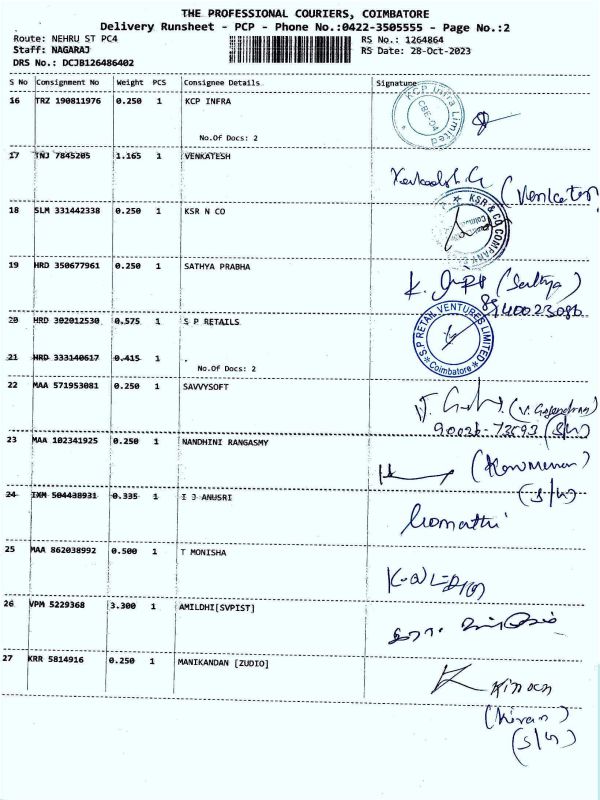 THE PROFESSIONAL COURIERS, COIMBATORE
Delivery Runsheet - PCP - Phone No.:0422-3505555 - Page No.:2
Route: NEHRU ST PC4 RS No.: 1264864
Staff: NAGARAJ RS Date: 28-Oct-2023
DRS No.: DCJB126486402
S No Consignment No Weight PCS Consignee Details Signature
16 TRZ 190811976 0.250 1 KCP INFRA
KCP Infra Limited CBE-04
No.Of Docs: 2
17 TNJ 7845205 1.165 1 VENKATESH
18 SLM 331442338 0.250 1 KSR N CO
KSR & CO COMPANY
19 HRD 350677961 0.250 1 SATHYA PRABHA
(Sathya)
20 HRD 302012530 0.575 1 S P RETAILS
S.P RETAIL VENTURES LIMITED Coimbatore
21 HRD 333140617 0.415 1 .
No.Of Docs: 2
22 MAA 571953081 0.250 1 SAVVYSOFT
(V. Gajendran)
(S/G)
23 MAA 102341925 0.250 1 NANDHINI RANGASMY
24 IXM 504438931 0.335 1 I J ANUSRI
Gomathi
25 MAA 862038992 0.500 1 T MONISHA
26 VPM 5229368 3.300 1 AMILDHI[SVPIST]
27 KRR 5814916 0.250 1 MANIKANDAN [ZUDIO]
(Kiran)